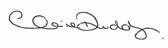 Claire Duddy.